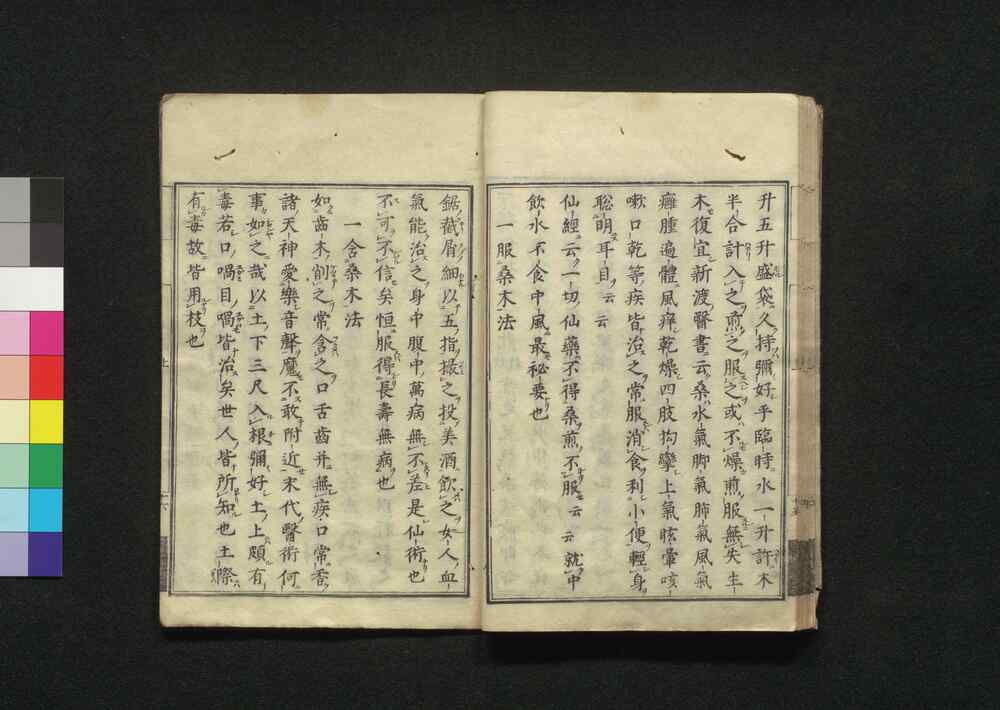 升五升盛袋久持彌好乎臨時水一升許木
半合計入之煎之服之或不燥煎服無失生
木復宜新渡醫書云桑水氣脚氣肺氣風氣
癰腫遍體風痒乾燥四肢拘攣上氣眩暈咳
嗽口乾等疾皆治之常服消食利小便輕身
聡明耳目云云
仙經云一切仙藥不得桑煎不服云云就中
飲水不食中風最祕要也
一服桑木法
鋸截屑細以五指撮之投美酒飲之女人血
氣能治之身中腹中萬病無不差是仙術也
不可不信矣恒服得長壽無病也
一含桑木法
如齒木削之常含之口舌齒并無疾口常香
諸天神愛樂音聲魔不敢附近末代醫術何
事如之哉以土下三尺入根彌好土上頗有
毒若口喎目喎皆治矣世人皆所知也土際
有毒故皆用枝也